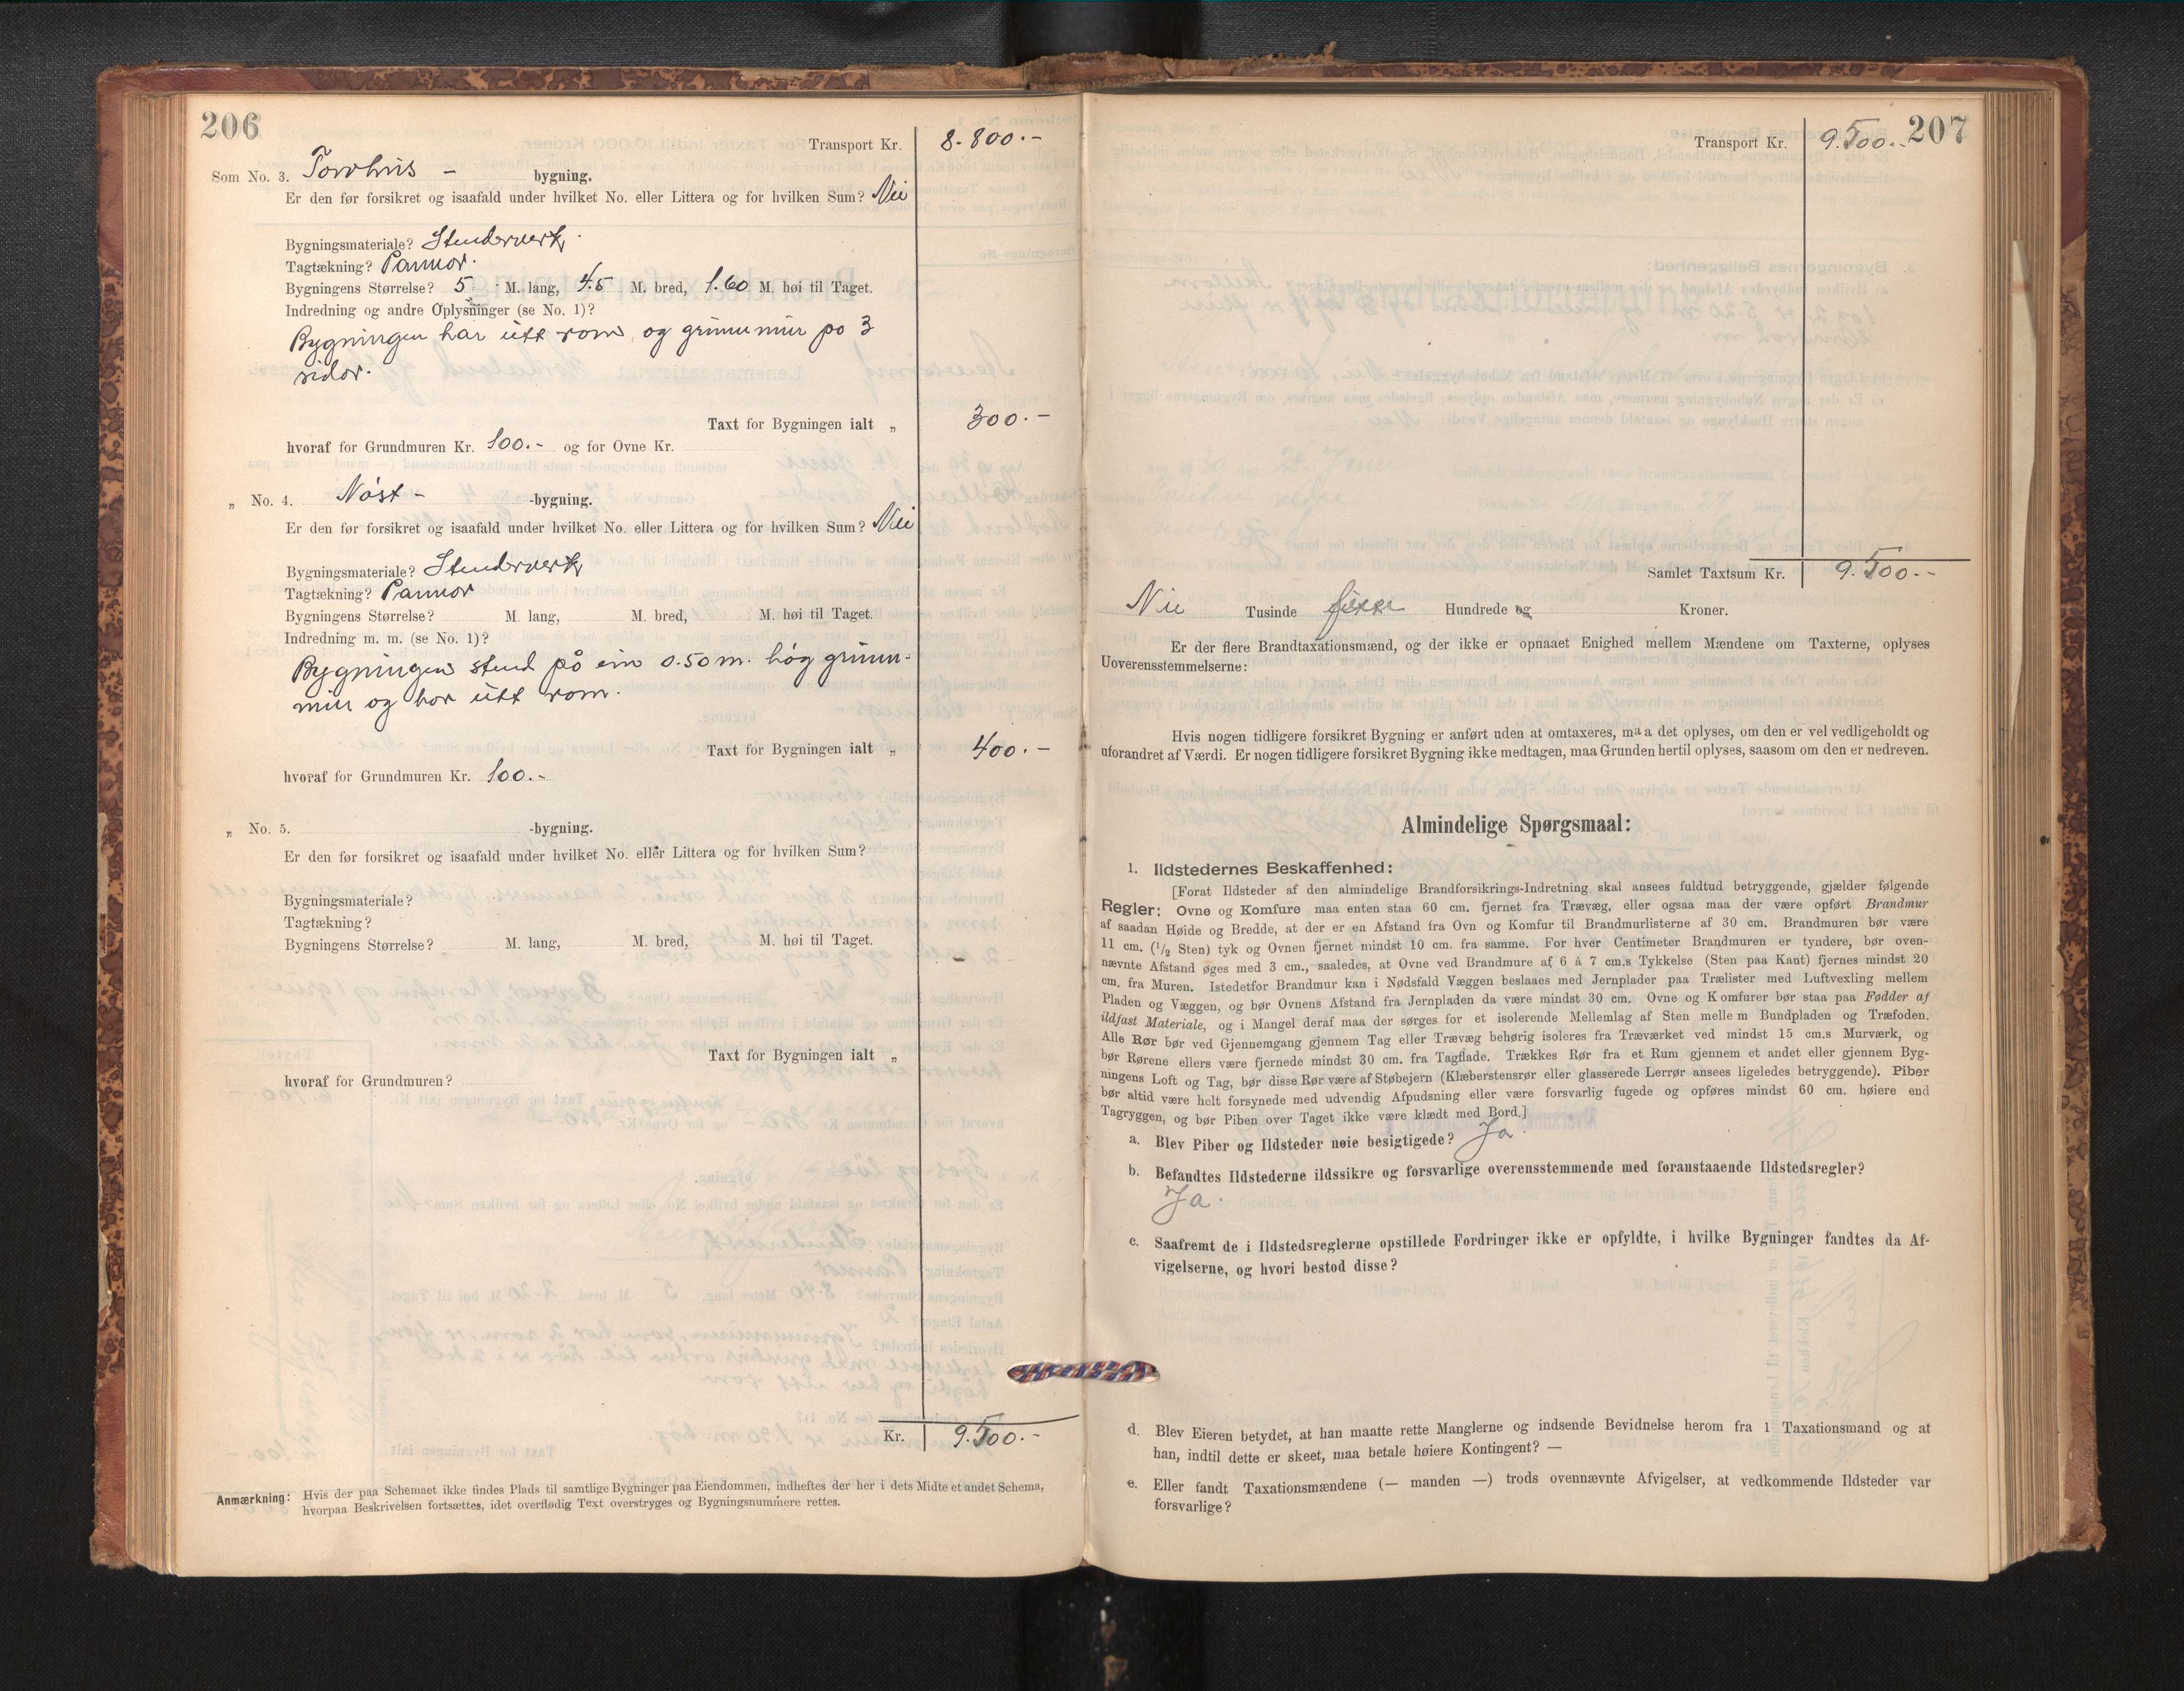 206
Transport Kr. 8.800.-
Som No. 3. Torvhus - bygning.
Er den før forsikret og isaafald under hvilket No. eller Littera og for hvilken Sum? Nei
Bygningsmateriale? Stenderverk.
Tagtækning? Pannor.
Bygningens Størrelse? 5 M. lang, 4.5 M. bred, 1.60 M. høi til Taget.
Indredning og andre Oplysninger (se No. 1)?
Bygningen har eitt rom og grunnmur po 3
sidor.
Taxt for Bygningen ialt „ 300.-
hvoraf for Grundmuren Kr. 100.- og for Ovne Kr.
„ No. 4. Nöst - -bygning.
Er den før forsikret og isaafald under hvilket No. eller Littera og for hvilken Sum? Nei
Bygningsmateriale? Stenderverk
Tagtækning? Pannor
Bygningens Størrelse? M. lang, M. bred, M. høi til Taget.
Indredning m. m. (se No. 1)?
Bygningen stend på ein 0.50 m. hög grunn-
mur og har eitt rom.
Taxt for Bygningen ialt „ 400.-
hvoraf for Grundmuren Kr. 100.-
„ No. 5. -bygning.
Er den før forsikret og isaafald under hvilket No. eller Littera og for hvilken Sum?
Bygningsmateriale?
Tagtækning?
Bygningens Størrelse? M. lang, M. bred, M. høi til Taget.
Taxt for Bygningen ialt „
hvoraf for Grundmuren?
Kr. 9.500.-
Anmærkning: Hvis der paa Schemaet ikke findes Plads til samtlige Bygninger paa Eiendommen, indheftes der her i dets Midte et andet Schema,
hvorpaa Beskrivelsen fortsættes, idet overflødig Text overstryges og Bygningsnummere rettes.
207
Transport Kr. 9.500.-
Samlet Taxtsum Kr. 9.500.-
Nie Tusinde Hundrede og Kroner.
Er der flere Brandtaxationsmænd, og der ikke er opnaaet Enighed mellem Mændene om Taxterne, oplyses
Uoverensstemmelserne:
Hvis nogen tidligere forsikret Bygning er anført uden at omtaxeres, maa det oplyses, om den er vel vedligeholdt og
uforandret af Værdi. Er nogen tidligere forsikret Bygning ikke medtagen, maa Grunden hertil oplyses, saasom om den er nedreven.
Almindelige Spørgsmaal:
1. Ildstedernes Beskaffenhed:
[Forat Ildsteder af den almindelige Brandforsikrings-Indretning skal ansees fuldtud betryggende, gjælder følgende
Regler: Ovne og Komfure maa enten staa 60 cm. fjernet fra Trævæg, eller ogsaa maa der være opført Brandmur
af saadan Høide og Bredde, at der er en Afstand fra Ovn og Komfur til Brandmurlisterne af 30 cm. Brandmuren bør være
11 cm. (1/2 Sten) tyk og Ovnen fjernet mindst 10 cm. fra samme. For hver Centimeter Brandmuren er tyndere, bør oven-
nævnte Afstand øges med 3 cm., saaledes, at Ovne ved Brandmure af 6 à 7 cm.s Tykkelse (Sten paa Kant) fjernes mindst 20
cm. fra Muren. Istedetfor Brandmur kan i Nødsfald Væggen beslaaes med Jernplader paa Trælister med Luftvexling mellem
Pladen og Væggen, og bør Ovnens Afstand fra Jernpladen da være mindst 30 cm. Ovne og Komfurer bør staa paa Fødder af
ildfast Materiale, og i Mangel deraf maa der sørges for et isolerende Mellemlag af Sten mellem Bundpladen og Træfoden.
Alle Rør bør ved Gjennemgang gjennem Tag eller Trævæg behørig isoleres fra Træværket ved mindst 15 cm.s Murværk, og
bør Rørene ellers være fjernede mindst 30 cm. fra Tagflade. Trækkes Rør fra et Rum gjennem et andet eller gjennem Byg-
ningens Loft og Tag, bør disse Rør være af Støbejern (Klæberstensrør eller glasserede Lerrør ansees ligeledes betryggende). Piber
bør altid være helt forsynede med udvendig Afpudsning eller være forsvarlig fugede og opføres mindst 60 cm. høiere end
Tagryggen, og bør Piben over Taget ikke være klædt med Bord.]
a. Blev Piber og Ildsteder nøie besigtigede? Ja
b. Befandtes Ildstederne ildssikre og forsvarlige overensstemmende med foranstaaende Ildstedsregler?
Ja.
c. Saafremt de i Ildstedsreglerne opstillede Fordringer ikke er opfyldte, i hvilke Bygninger fandtes da Af-
vigelserne, og hvori bestod disse?
d. Blev Eieren betydet, at han maatte rette Manglerne og indsende Bevidnelse herom fra 1 Taxationsmand og at
han, indtil dette er skeet, maa betale høiere Kontingent? —
e. Eller fandt Taxationsmændene (— manden —) trods ovennævnte Afvigelser, at vedkommende Ildsteder var
forsvarlige?